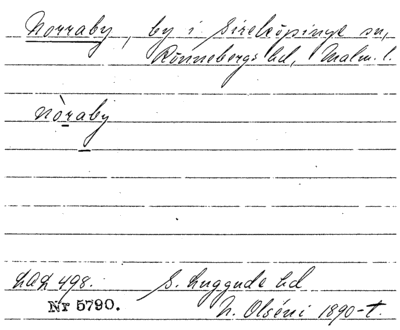 Norraby, by i Sireköpinge sn,
Rönnebergs hd, Malm. l.
nòraby
LAL 498. S. Luggude hd
Nr 5790. N. Olséni 1890-t.